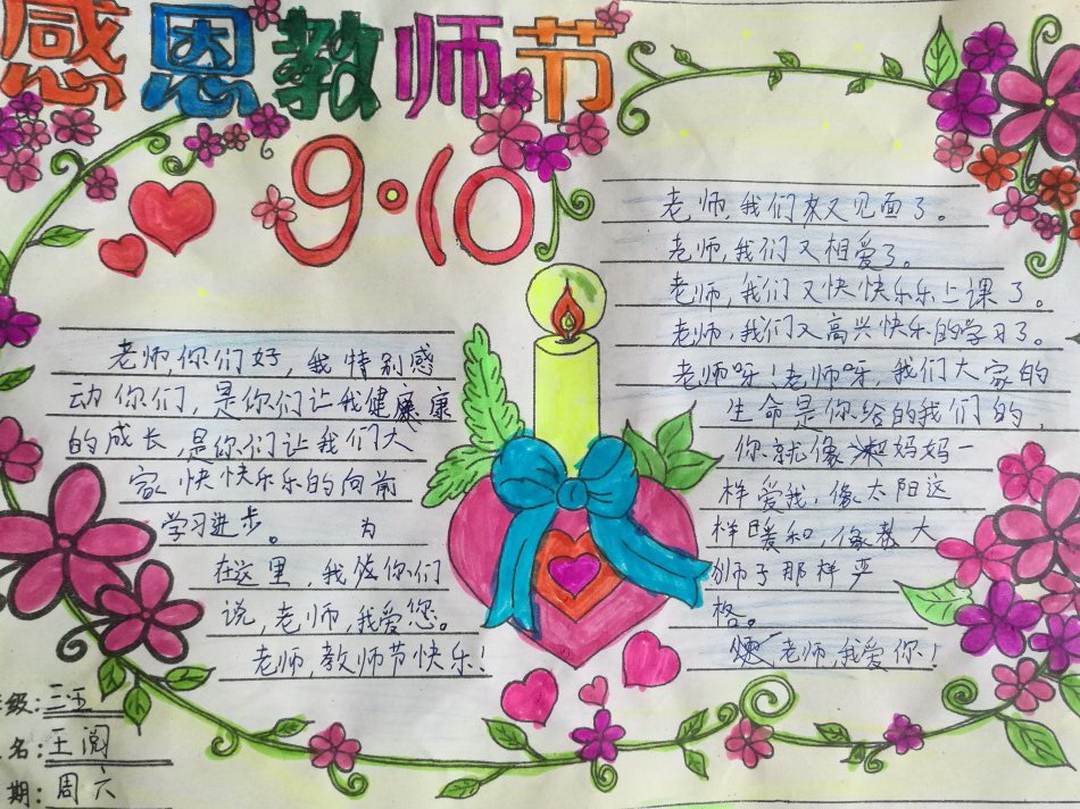 感恩教师节
9·10
老师,你们好,我特别感
动你们,是你们让我健康
的成长,是你们让我们大
家快快乐乐的向前
学习进步。为
在这里,我你们
说,老师,我爱您。
老师,教师节快乐!
级:三
名:王阅
期:周六
老师,我们来又见面了。
老师,我们又相爱了。
老师,我们又快快乐乐上课了。
老师,我们又高兴快乐的学习了。
老师呀!老师呀,我们大家的
生命是你给的我们的,
你就像妈妈一
样爱我,像太阳这
样暖和,像大
狮子那样严
格。
老师,我爱你!